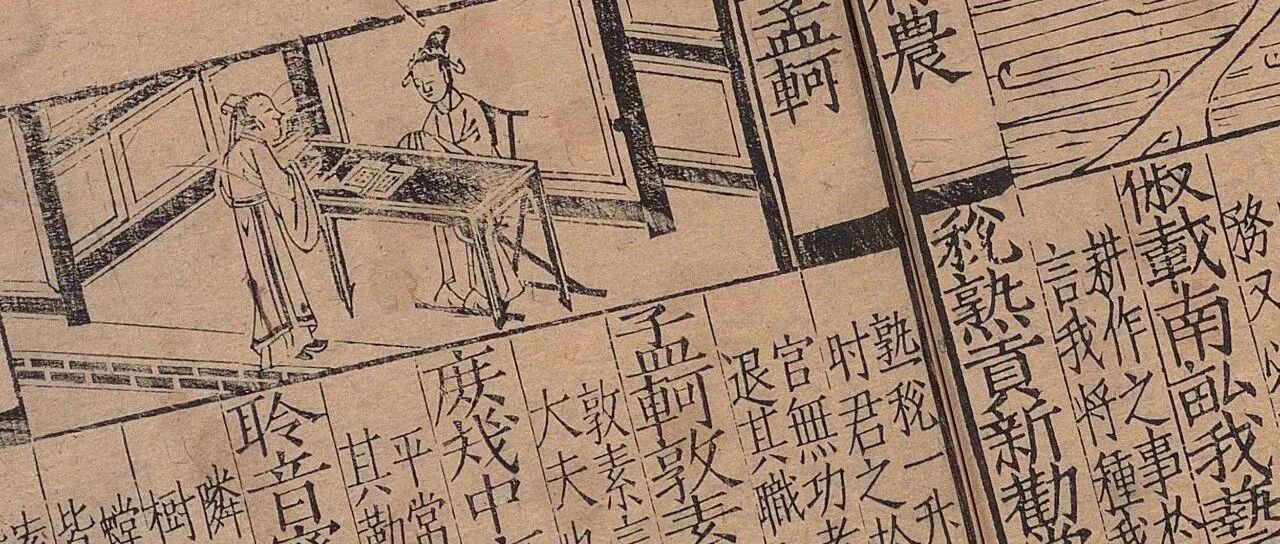 農
務又
俶載南畝我藝
耕作之事於
言我将種我
稅熟貢新勸
孟軻
熟稅一升
时君之
官無功者
退其職
孟軻敦素
敦素言
大夫
庶幾中
平常
其勤
聆音
隣
樹
螳
皆